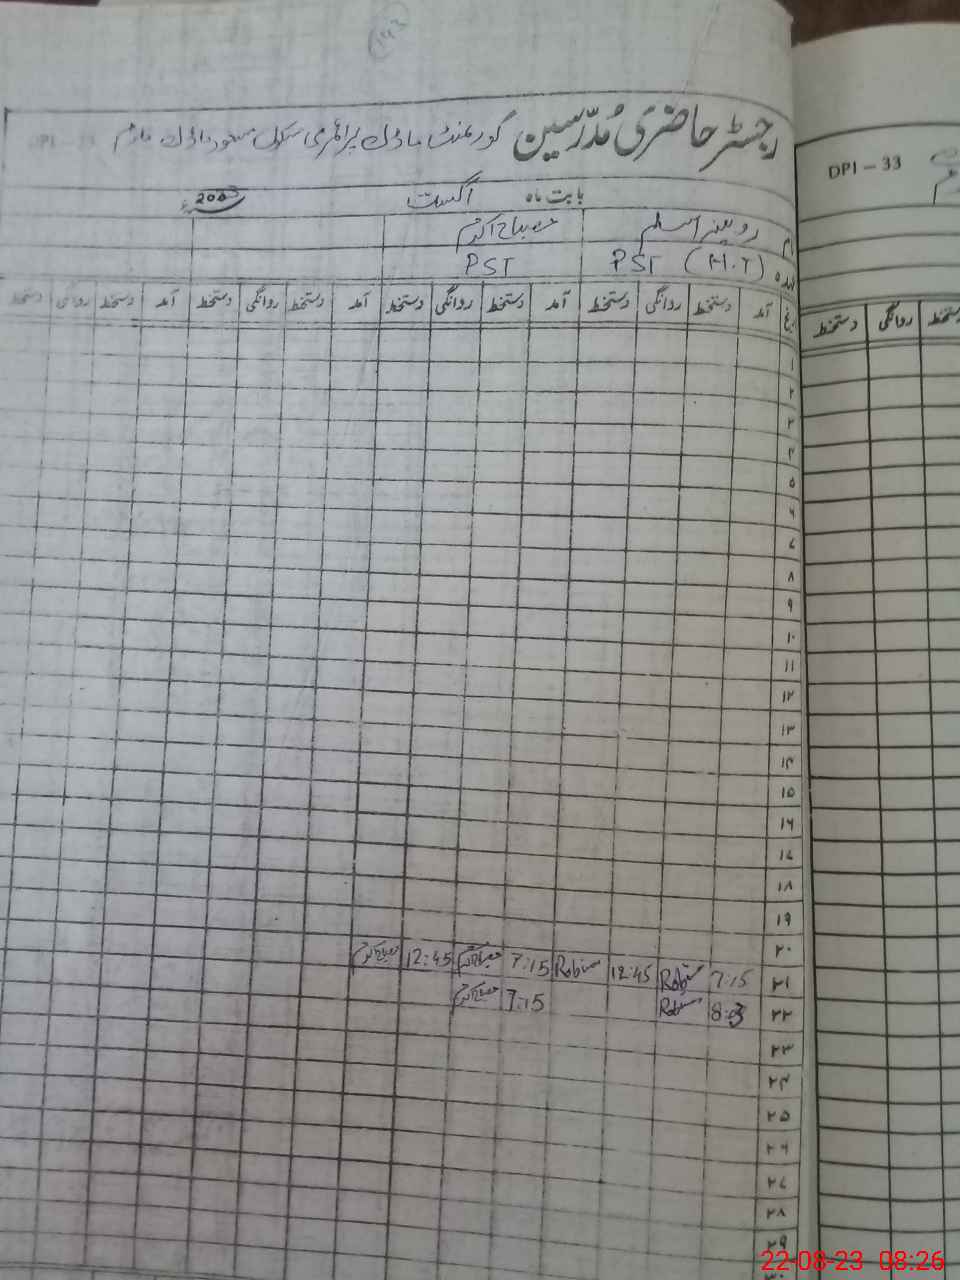 143
رجسٹر حاضری مُدرّسین گورنمنٹ ماڈل پرائمری سکول مسعود ماڈل فارم
DPI – 33
بابت ماہ اگست
نام روبینہ اسلم مصباح اکرم
عہدہ PST (H.T) PST
تاریخ آمد دستخط روانگی دستخط آمد دستخط روانگی دستخط آمد دستخط روانگی دستخط آمد دستخط روانگی دستخط
دستخط روانگی دستخط
۱
۲
۳
۴
۵
۶
۷
۸
۹
۱۰
۱۱
۱۲
۱۳
۱۴
۱۵
۱۶
۱۷
۱۸
۱۹
۲۰
۲۱ 7:15 12:45 7:15 مصباح اکرم 12:45 مصباح اکرم
۲۲ 7:15 مصباح اکرم
۲۳
۲۴
۲۵
۲۶
۲۷
۲۸
۲۹
۳۰
22-08-23 08:26